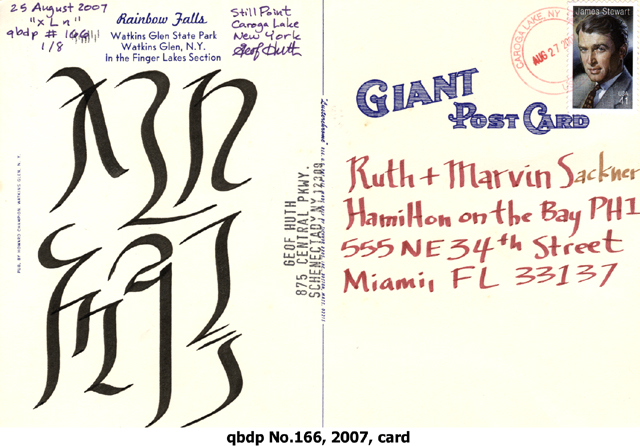 25 August 2007
"x L n"
qbdp # 166
1/8
Rainbow Falls
Watkins Glen State Park
Watkins Glen, N.Y.
In the Finger Lakes Section
StillPoint
Caroga Lake
New York
Geof Huth
PUB. BY HOWARD CHAMPION, WATKINS GLEN, N. Y.
GEOF HUTH
875 CENTRAL PKWY.
SCHENECTADY NY 12309
CAROGA LAKE, NY
AUG 27
James Stewart
USA
41
GIANT
POST CARD
Ruth + Marvin Sackner
Hamilton on the Bay PH1
555 NE 34th Street
Miami, FL 33137
qbdp No.166, 2007, card